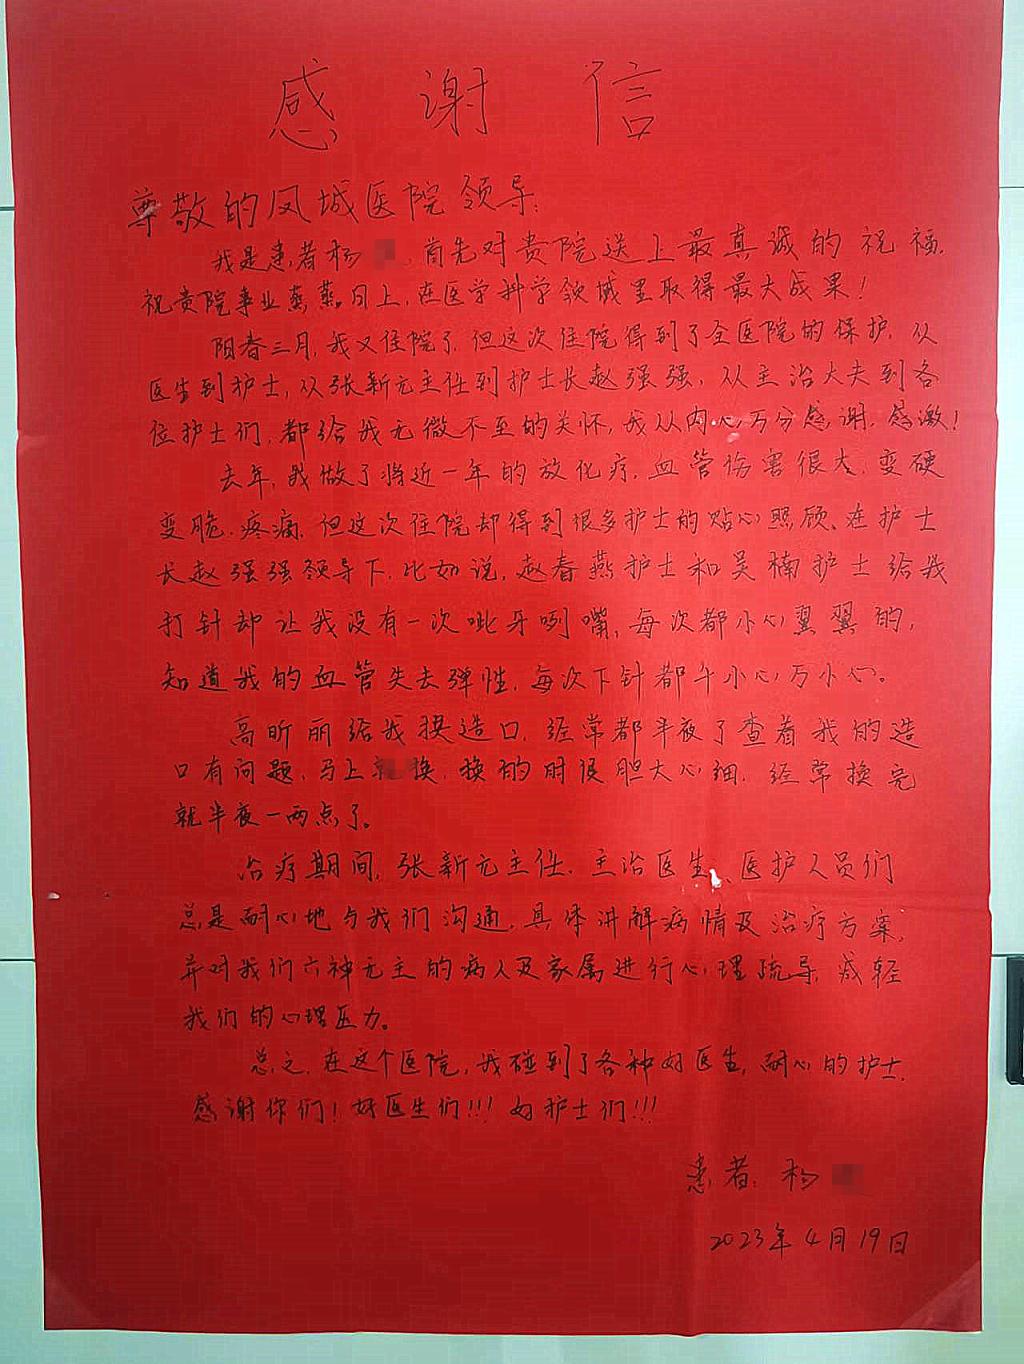 感谢信
尊敬的凤城医院领导：
我是患者杨 ，首先对贵院送上最真诚的祝福，
祝贵院事业蒸蒸日上，在医学科学领域里取得最大成果！
阳春三月，我又住院了，但这次住院得到了全医院的保护，从
医生到护士，从张新元主任到护士长赵强强，从主治大夫到各
位护士们，都给我无微不至的关怀，我从内心万分感谢，感激！
去年，我做了将近一年的放化疗，血管伤害很大，变硬
变脆，疼痛，但这次住院却得到很多护士的贴心照顾、在护士
长赵强强领导下，比如说，赵春燕护士和吴楠护士给我
打针却让我没有一次呲牙咧嘴，每次都小心翼翼的，
知道我的血管失去弹性，每次下针都千小心万小心。
高昕丽给我换造口，经常都半夜了查看我的造
口有问题，马上 换，换的时侯胆大心细，经常换完
就半夜一两点了。
治疗期间，张新元主任、主治医生、医护人员们
总是耐心地与我们沟通，具体讲解病情及治疗方案，
并对我们六神无主的病人及家属进行心理疏导，减轻
我们的心理压力。
总之，在这个医院，我碰到了各种好医生，耐心的护士，
感谢你们！好医生们！！！好护士们！！！
患者：杨
2023年4月19日